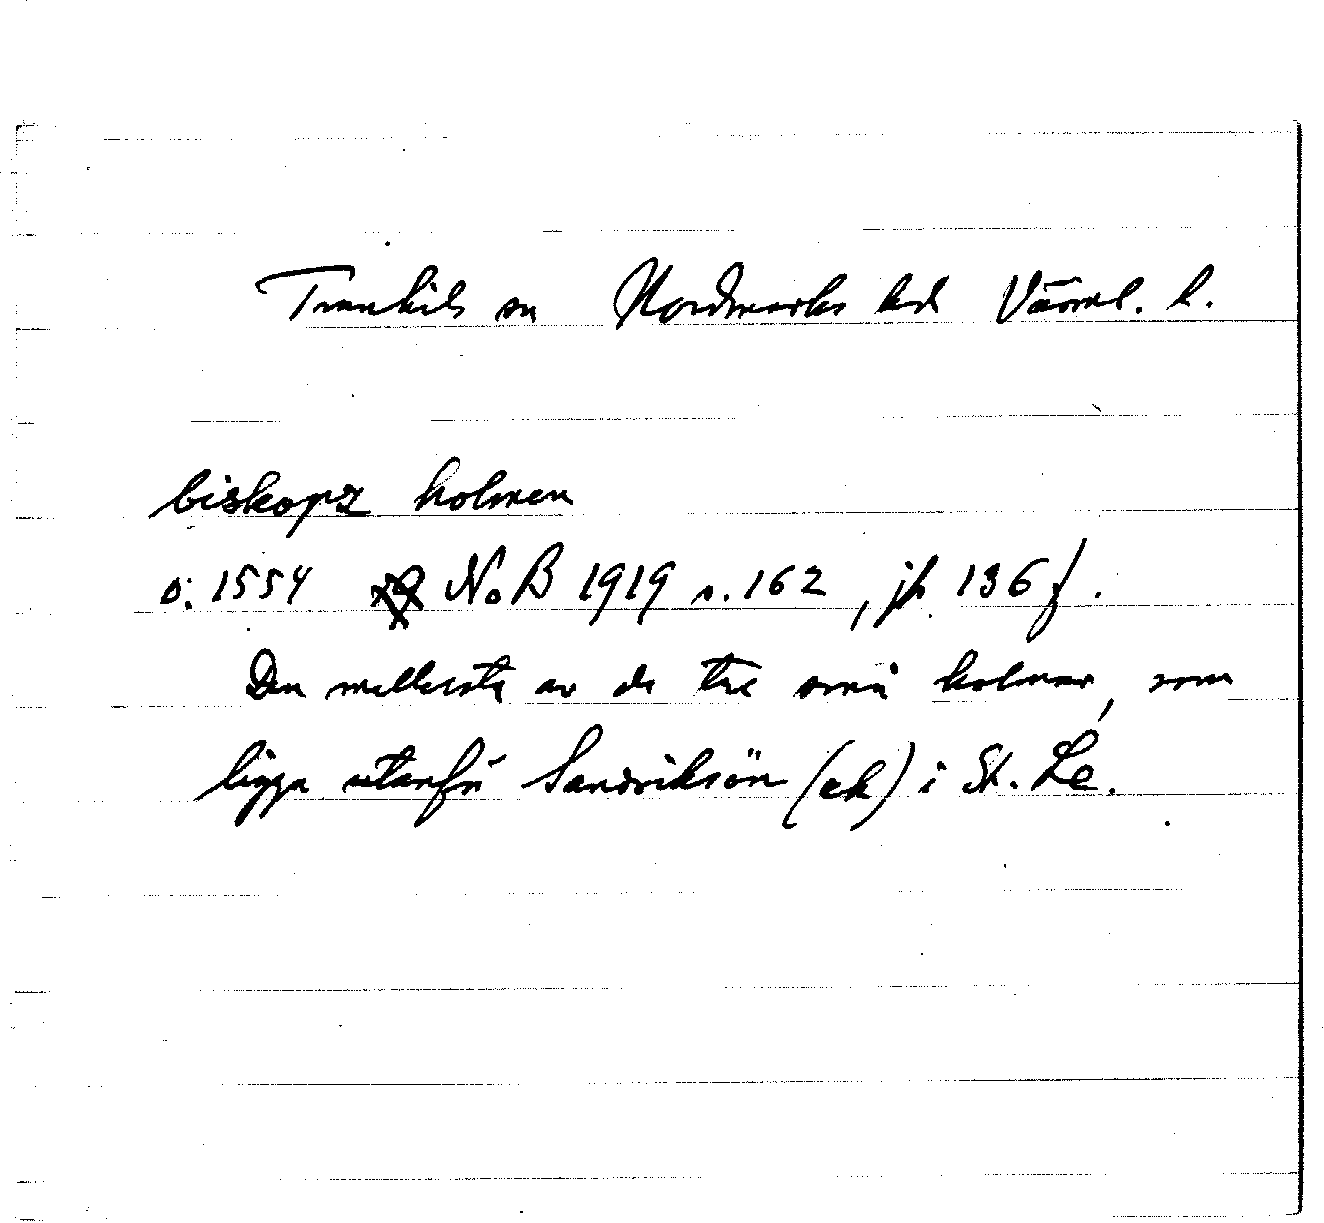 Trankils sn Nordmarks hd Värml. l.
biskopz holmen
o. 1554 NoB 1919 s. 162, jfr 136 f.
Den mellersta av de tre små holmar, som
ligga utanför Sandviksön (ek) i St. Le.